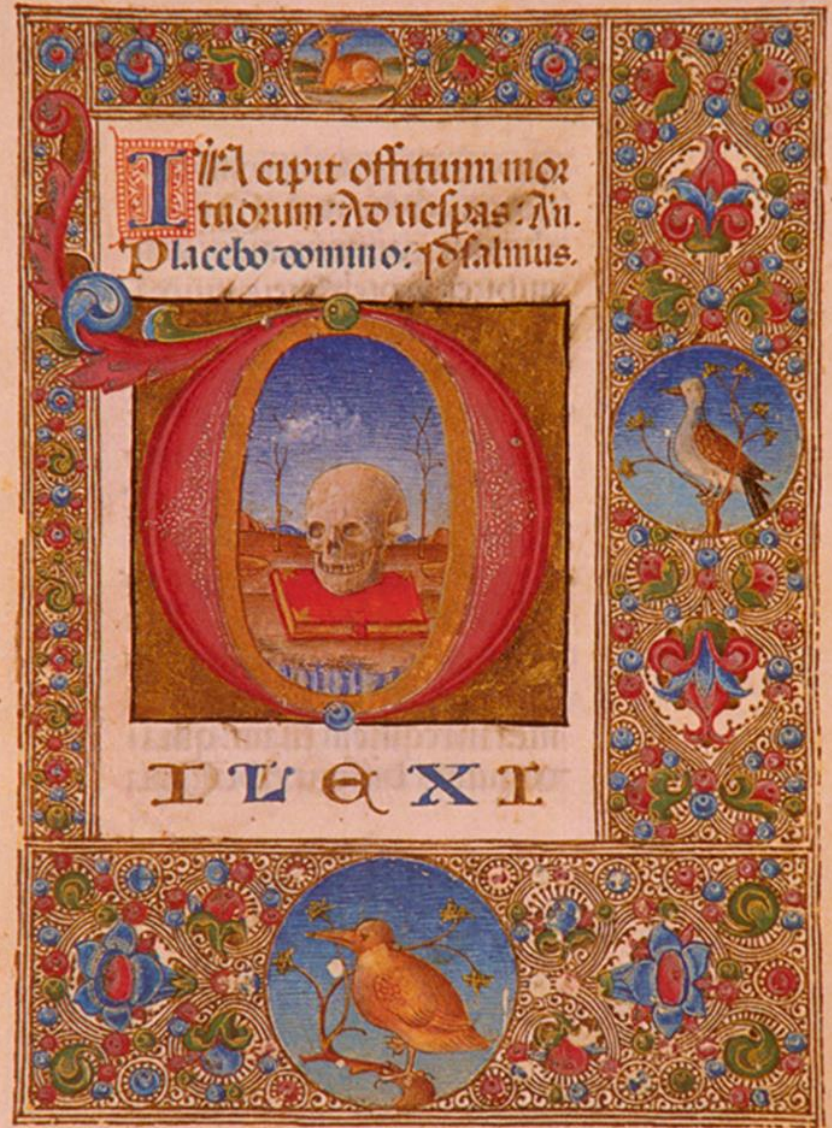 Incipit offitium mor
tuorum: Ad uespas: An.
Placebo domino: psalmus.
D
ILEXI